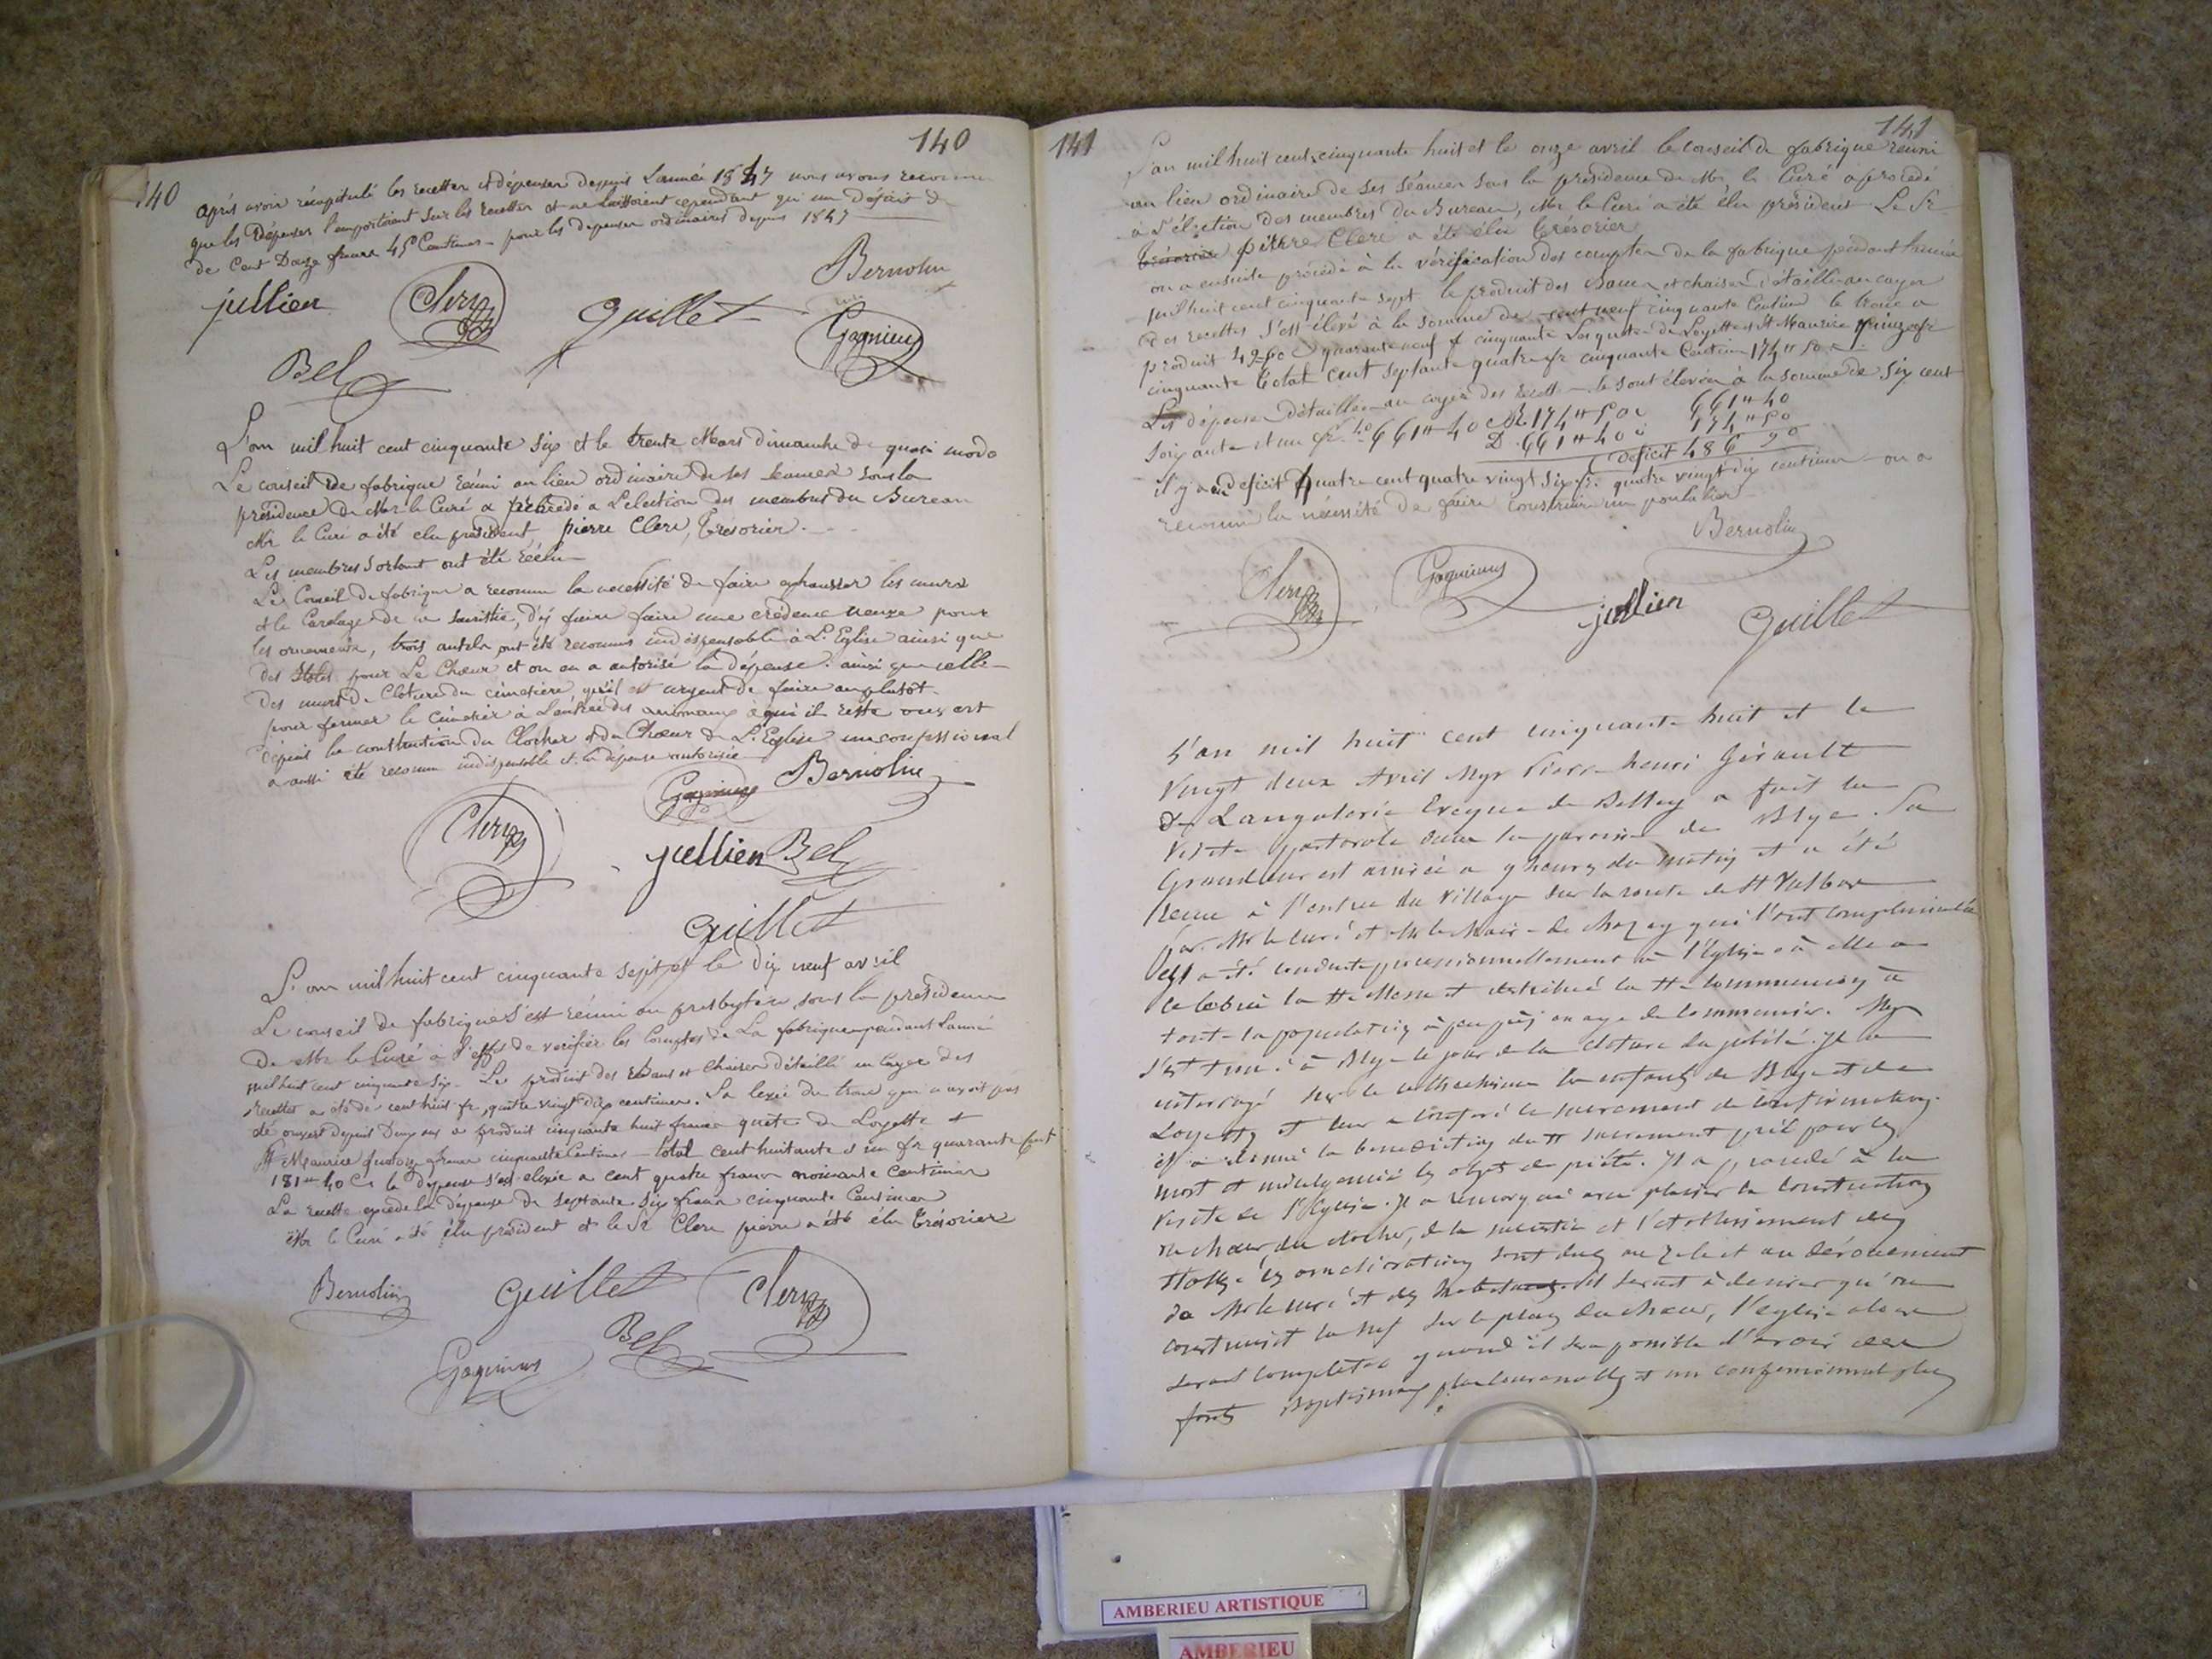 140
140
après avoir récapitulé les recettes et dépenses depuis L'année 1847 nous avons reconnu
que les Dépenses l'emportoient sur les Recettes et ne laissoient cependant qu'un Déficit de
de Cent Douze francs 45 Centimes pour les depenses ordinaires depuis 1847
jullien Clerc Guillet Bernolin
Bel Gagnieux
L'an mil huit cent cinquante six et le trente Mars dimanche de quasi modo
Le conseil De fabrique réuni au lieu ordinaire de ses séances sous la
présidence de Mr le Curé a procédé a L'élection des membres du Bureau
Mr le Curé a été élu président, pierre Clerc, Trésorier.
Les membres Sortant ont été réélu
Le Conseil de fabrique a reconnu la necessité de faire exhausser les murs
et le Carelage de la Sacristie, d'y faire faire une crédence neuve pour
les ornements, trois autels ont été reconnus indispensable à L'Eglise ainsi que
des Stales pour Le Chœur et on en a autorisé la dépense. ainsi que celle
des murs de Cloture du cimetière qu'il est urgent de faire au plutôt
pour fermer le cimetière à L'entrée des animaux à qui il reste ouvert
depuis la construction du Clocher et du Chœur de L'Eglise un confessional
a aussi été reconnu indispensable et la dépense autorisée
Gagnieux Bernolin
Clerc
jullien Bel
Guillet
L'an mil huit cent cinquante sept et le dix neuf avril
Le conseil de fabrique S'est réuni au presbytère sous la présidence
De Mr le Curé à L'effet de verifier les Comptes de La fabrique pendant L'année
mil huit cent cinquante six. Le produit des Bancs et Chaises détaillé au cayer des
recettes a été de cent huit fr, quatre vingt dix centimes. La levée du tronc qui n'avoit pas
été ouvert depuis Deux ans a produit cinquante huit francs quete de Loyette et
St Maurice quatorze francs cinquante Centimes total cent huitante et un fr quarante cent
181 " 40 C la dépense s'est elevée a cent quatre francs nonante centimes
La recette excède la dépense de Septante Six francs cinquante Centimes
Mr le Curé a été élu président et le Sr Clerc pierre a été élu trésorier
Bernolin Guillet Clerc
Gagnieux Bel
141
141
L'an mil huit cent cinquante huit et le onze avril le conseil de fabrique réuni
au lieu ordinaire de ses séances sous la présidence de Mr le Curé a procédé
à L'élection des membres du Bureau, Mr le Curé a été élu président Le Sr
trésorier pierre Clerc a été élu trésorier
on a ensuite procédé à la vérification des comptes de la fabrique pendant L'année
mil huit cent cinquante sept le produit des Bancs et chaises détaillé au cayer
des recettes S'est élevé à la somme de cent neuf cinquante Centimes le tronc a
produit 49.50 C quarante neuf f cinquante Les quetes de Loyette et St Maurice quinze fr
cinquante total cent septante quatre fr cinquante Centimes 174 " 50 C
Les dépenses détaillées au cayer des recett se sont élevées à la somme de Six cent
soixante et un fr 40 661 " 40 C R. 174 " 50 C 661 " 40
D. 661 " 40 C 174 " 50
Déficit 486 90
il y a eu deficit quatre cent quatre vingt Six fr. quatre vingt dix centimes on a
reconnu la nécessité de faire construire un poulalier
Bernolin
Clerc Gagnieux jullien Guillet
L'an mil huit cent cinquante huit et le
vingt deux Avril Mgr Pierre henri Gérault
de Langalerie Evêque de Belley a fait la
visite pastorale dans la paroisse de Blye. Sa
Grandeur est arrivée a 9 heures du matin et a été
recue à l'entrée du village sur la route de St Vulbas
par Mr le curé et Mr le Maire de Chazey qui l'ont complimentée
Elle a été conduite processionnellement à l'église où elle a
celebré la Ste Messe et distribué la Ste communion à
toute la population à peu près en age de communier. Mgr
s'est trouvé à Blye le jour de la cloture du jubilé. Il a
interrogé sur le cathechisme les enfants de Blye et de
Loyette et leur a conféré le sacrement de confirmation.
Il a donné la benediction du St sacrement prié pour les
mort et indulgencié les objets de piété. Il a procédé à la
visite de l'église. Il a remarqué avec plaisir la construction
du chœur, du clocher, de la sacristie et l'établissement des
stalles. Ces améliorations sont dues au zele et au dévouement
de Mr le curé et des habitants. Il serait à desirer qu'on
construisit la nef sur le plan du chœur, l'église alors
serait complete quand il sera possible d'avoir des
fonts Baptismaux plus convenables et un confessionnal plus
AMBERIEU ARTISTIQUE
AMBERIEU